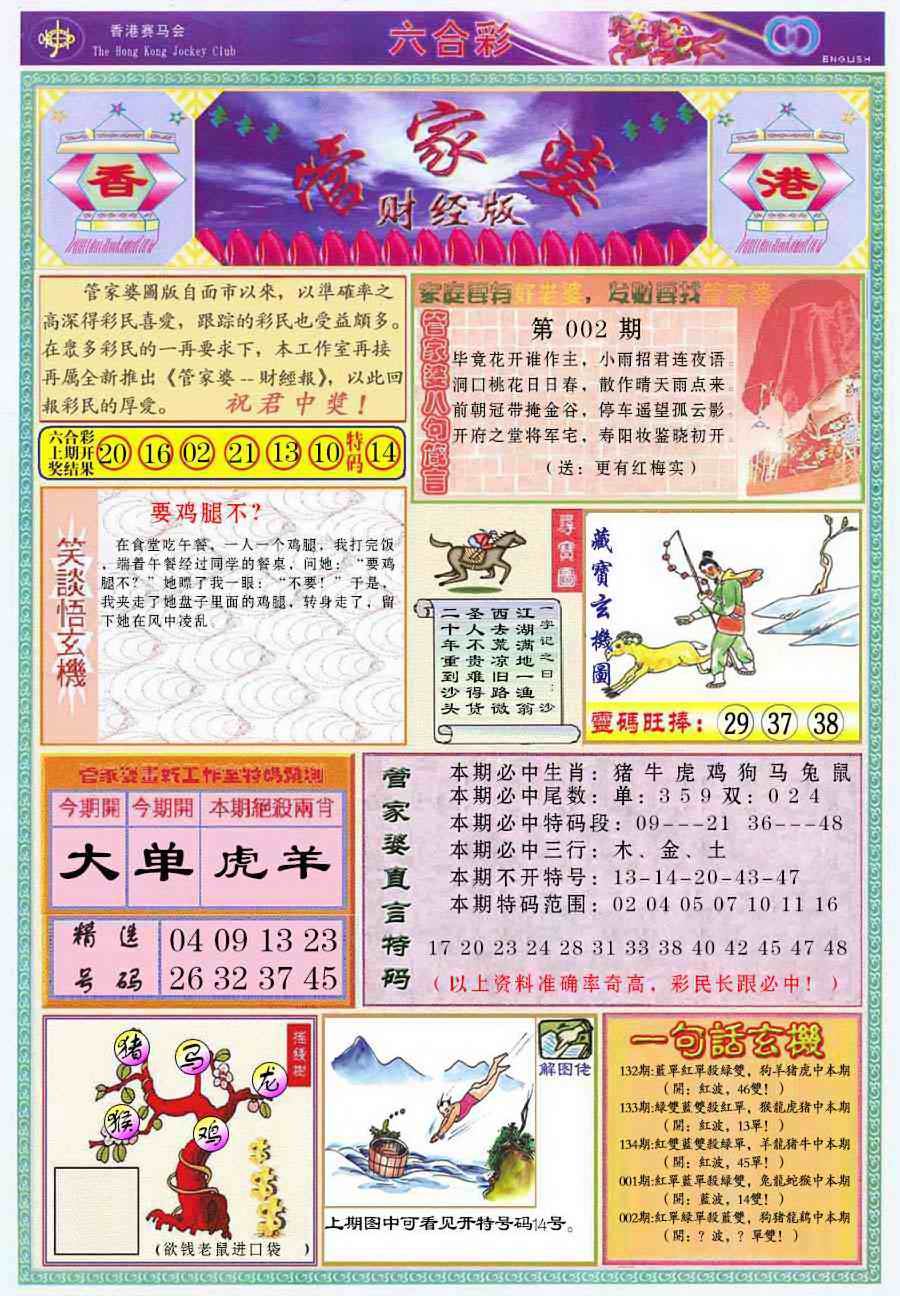 香港赛马会
The Hong Kong Jockey Club
六合彩
ENGLISH
香
管家婆
财经版
港
管家婆圖版自面市以來，以準確率之
高深得彩民喜愛，跟踪的彩民也受益頗多。
在眾多彩民的一再要求下，本工作室再接
再厲全新推出《管家婆--財經報》，以此回
報彩民的厚愛。 祝君中獎！
六合彩
上期开
奖结果
20 16 02 21 13 10 特码 14
家庭要有好老婆，发财要找管家婆
管家婆八句箴言
第 002 期
毕竟花开谁作主，小雨招君连夜语。
洞口桃花日日春，散作晴天雨点来。
前朝冠带掩金谷，停车遥望孤云影。
开府之堂将军宅，寿阳妆鉴晓初开。
（送：更有红梅实）
笑談悟玄機
要鸡腿不？
在食堂吃午餐，一人一个鸡腿，我打完饭
，端着午餐经过同学的餐桌，问她：“要鸡
腿不？”她瞟了我一眼：“不要！”于是，
我夹走了她盘子里面的鸡腿，转身走了，留
下她在风中凌乱。
尋寶圖
一字记之曰：沙
江湖满地一渔翁
西去荒凉旧路微
圣人不贵难得货
二十年重到沙头
藏寶玄機圖
靈碼旺捧：29 37 38
管家婆畫新工作室特碼預測
今期開 今期開 本期絕殺兩肖
大 单 虎羊
精选
号码
04 09 13 23
26 32 37 45
管家婆直言特码
本期必中生肖：猪 牛 虎 鸡 狗 马 兔 鼠
本期必中尾数：单：3 5 9 双：0 2 4
本期必中特码段：09---21 36---48
本期必中三行：木、金、土
本期不开特号：13-14-20-43-47
本期特码范围：02 04 05 07 10 11 16
17 20 23 24 28 31 33 38 40 42 45 47 48
（以上资料准确率奇高，彩民长跟必中！）
摇钱树
猪
马
龙
猴
鸡
（欲钱老鼠进口袋）
解图佬
上期图中可看见开特号码14号。
一句話玄機
132期:藍單紅單殺綠雙，狗羊猪虎中本期
（開：紅波，46雙！）
133期:綠雙藍雙殺紅單，猴龍虎猪中本期
（開：紅波，13單！）
134期:紅雙藍雙殺綠單，羊龍猪牛中本期
（開：紅波，45單！）
001期:紅單藍單殺綠雙，兔龍蛇猴中本期
（開：藍波，14雙！）
002期:紅單綠單殺藍雙，狗猪龍鷄中本期
（開：？波，？單雙！）